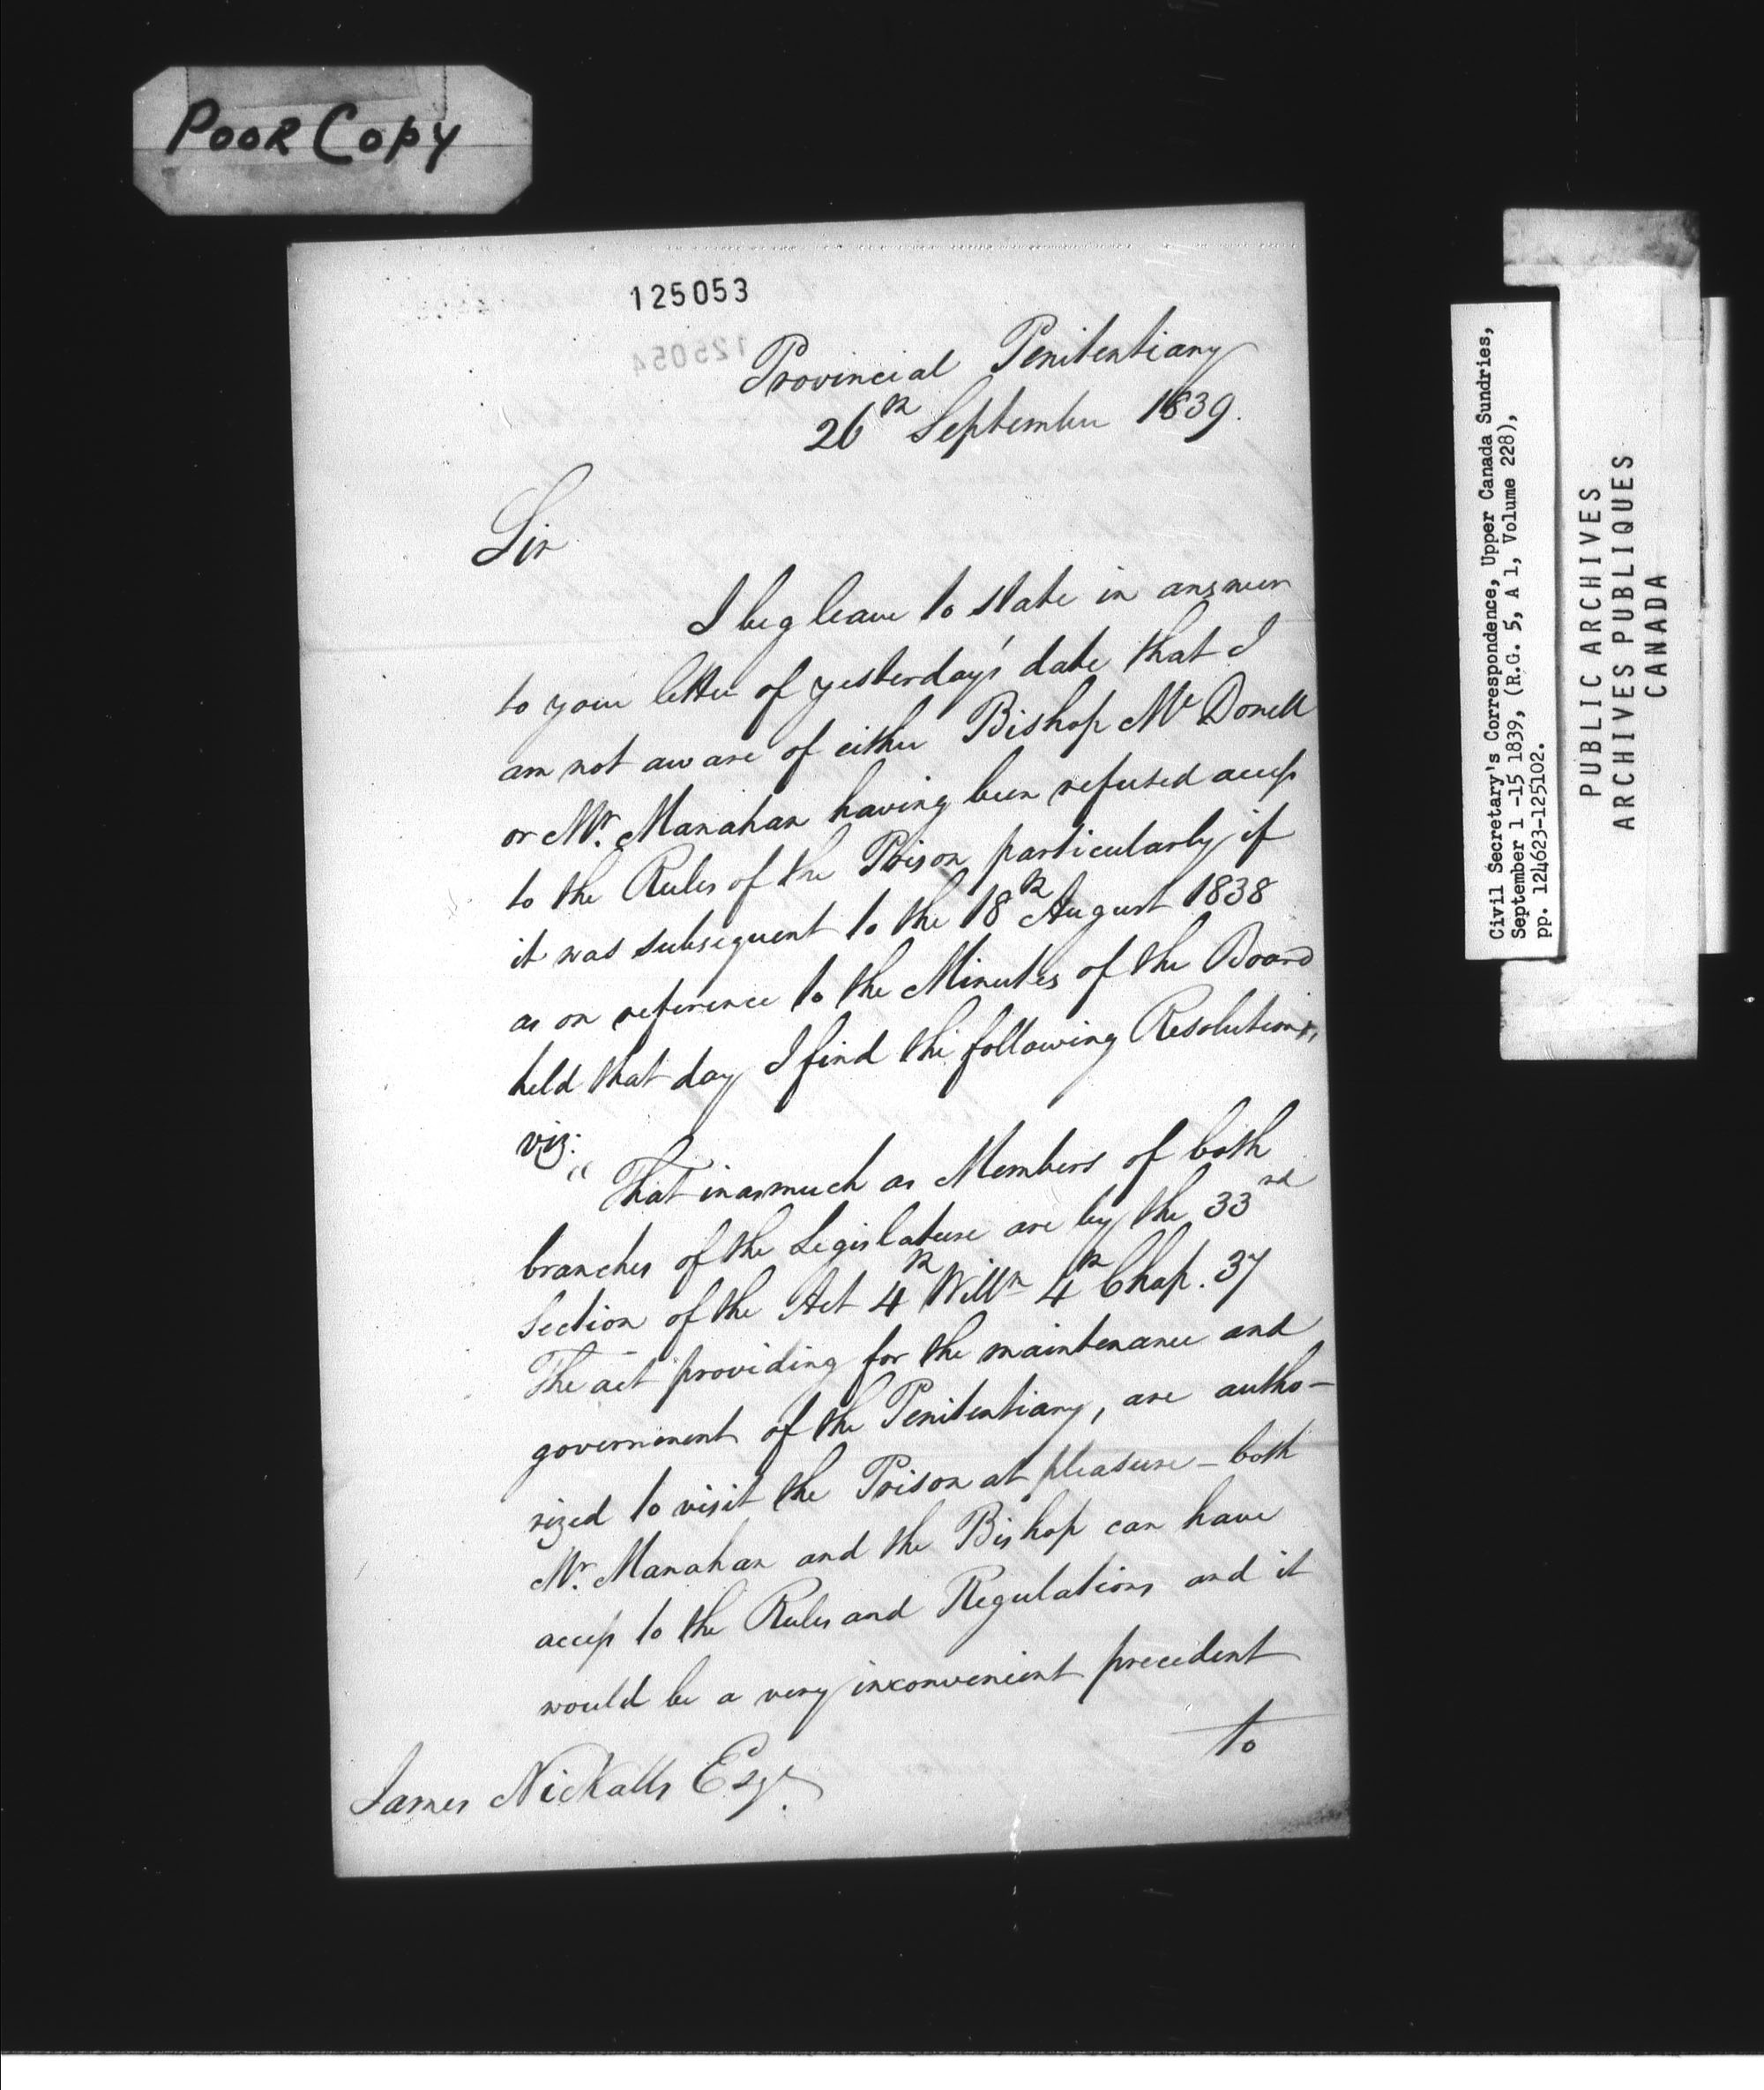 POOR COPY
125053
125054
Provincial Penitentiary
26th September 1839.
Sir
I beg leave to state in answer
to your letter of yesterday's date that I
am not aware of either Bishop McDonell
or Mr. Manahan having been refused access
to the Rules of the Prison particularly if
it was subsequent to the 18th August 1838
as on reference to the Minutes of the Board
held that day I find the following Resolution,
viz:
"That inasmuch as Members of both
branches of the Legislature are by the 33rd
Section of the Act 4th Willm 4th Chap. 37
The act providing for the maintenance and
government of the Penitentiary, are autho-
rized to visit the Prison at pleasure - both
Mr. Manahan and the Bishop can have
access to the Rules and Regulations and it
would be a very inconvenient precedent
to
James Nickalls Esqr.
Civil Secretary's Correspondence, Upper Canada Sundries,
September 1 -15 1839, (R.G. 5, A 1, Volume 228),
pp. 124623-125102.
PUBLIC ARCHIVES
ARCHIVES PUBLIQUES
CANADA